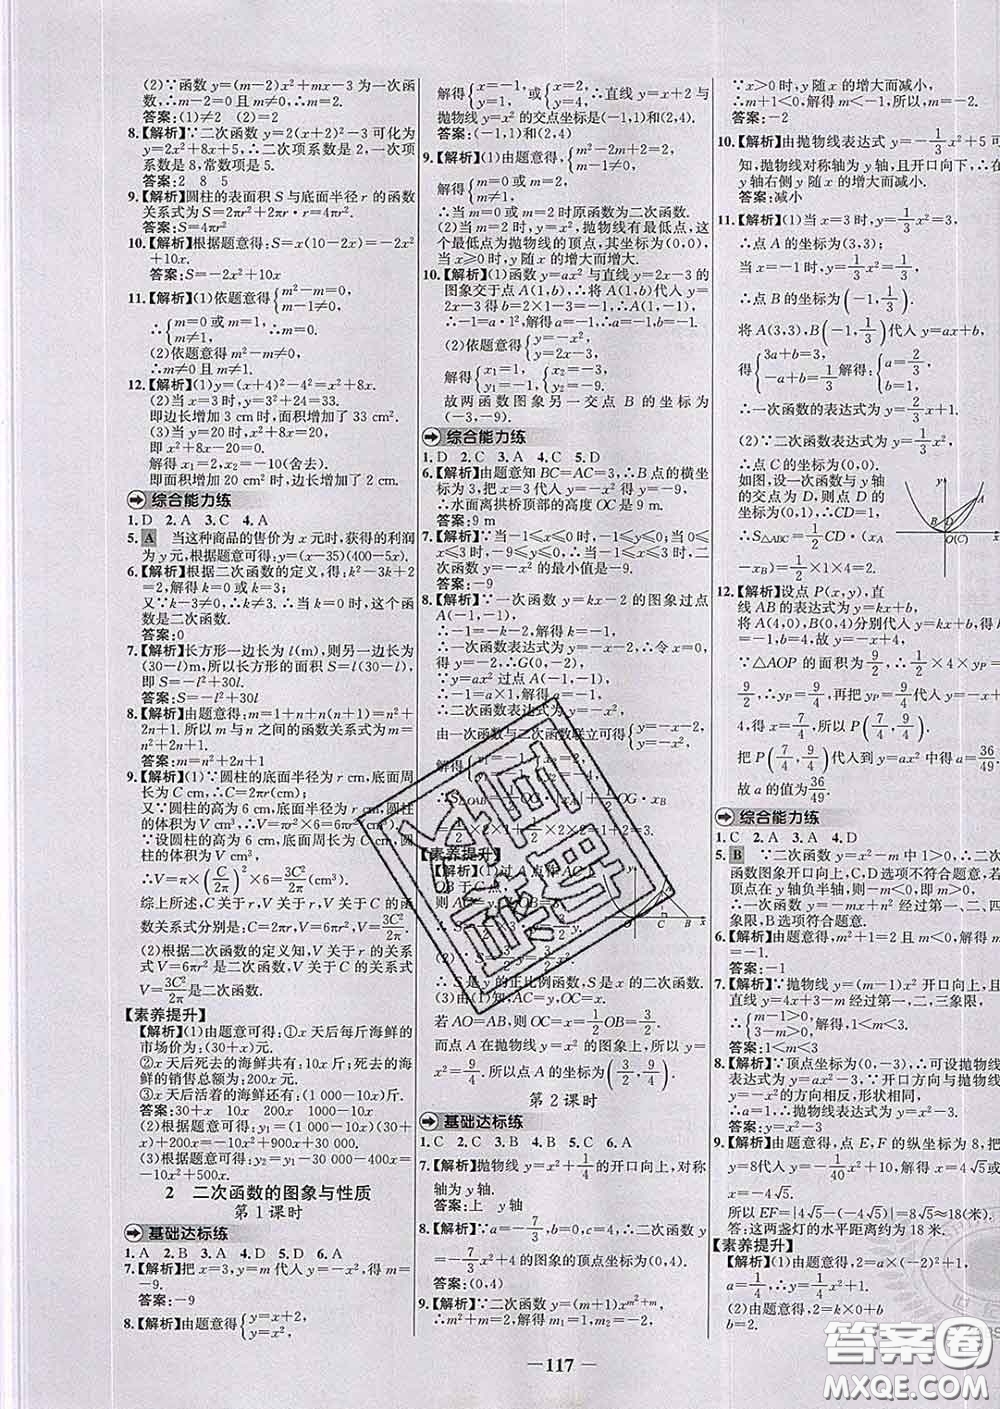 (2)∵函数 y=(m-2)x²+mx-3 为一次函
数,∴m-2=0 且 m≠0,∴m=2.
答案:(1)≠2 (2)=2
8.【解析】∵二次函数 y=2(x+2)²-3 可化为
y=2x²+8x+5,∴二次项系数是 2,一次项
系数是 8,常数项是 5.
答案:2 8 5
9.【解析】圆柱的表面积 S 与底面半径 r 的函数
关系式为 S=2πr²+2πr·r=4πr².
答案:S=4πr²
10.【解析】根据题意得:S=x(10-2x)=-2x²
+10x.
答案:S=-2x²+10x
11.【解析】(1)依题意得{m²-m=0,
m-1≠0,
∴{m=0或m=1,
m≠1, ∴m=0.
(2)依题意得 m²-m≠0,
∴m≠0且m≠1.
12.【解析】(1)y=(x+4)²-4²=x²+8x.
(2)当 x=3 时,y=3²+24=33.
即边长增加 3 cm 时,面积增加了 33 cm².
(3)当 y=20 时,x²+8x=20,
即 x²+8x-20=0.
解得:x₁=2,x₂=-10(舍去).
即面积增加 20 cm² 时,边长增加了 2 cm.
综合能力练
1.D 2.A 3.C 4.A
5. A 当这种商品的售价为 x 元时,获得的利润
为 y 元,根据题意可得:y=(x-35)(400-5x).
6.【解析】根据二次函数的定义,得:k²-3k+2
=2,解得 k=0 或 k=3;
又∵k-3≠0,∴k≠3,∴当 k=0 时,这个函
数是二次函数.
答案:0
7.【解析】长方形一边长为 l(m),则另一边长为
(30-l)m,所以长方形的面积 S=l(30-l),
即 S=-l²+30l.
答案:S=-l²+30l
8.【解析】由题意得:m=1+n+n(n+1)=n²+
2n+1.所以 m 与 n 之间的函数关系式为 m=
n²+2n+1.
答案:m=n²+2n+1
9.【解析】(1)∵圆柱的底面半径为 r cm,底面周
长为 C cm,∴C=2πr;
又∵圆柱的高为 6 cm,底面半径为 r cm,圆柱
的体积为 V cm³,∴V=πr²×6=6πr²;
∵设圆柱的高为 6 cm,底面周长为 C cm,圆柱
的体积为 V cm³,
∴V=π×(C/2π)²×6=3C²/2π.
综上所述,C 关于 r,V 关于 r,V 关于 C 的函数
关系式分别是:C=2πr,V=6πr²,V=3C²/2π.
(2)根据二次函数的定义知,V 关于 r 的函数
V=6πr² 是二次函数;V 关于 C 的函数关系式
V=3C²/2π 是二次函数.
【素养提升】
【解析】(1)由题意可得:①x 天后每斤海鲜的
市场价为:(30+x)元.
②x 天后死去的海鲜共有:10x 斤;死去的海
鲜的销售总额为:200x 元.
③x 天后活着的海鲜还有:(1000-10x)斤.
答案:30+x 10x 200x 1000-10x
(2)根据题意可得:y₁=(1000-10x)(30+x)
+200x=-10x²+900x+30000.
(3)根据题意可得:y₂=y₁-30000-400x=
-10x²+500x.
2 二次函数的图象与性质
第1课时
基础达标练
1.A 2.B 3.A 4.A 5.A 6.A
7.【解析】把 x=3,y=m 代入 y=-x²,得 m=
-9.
答案:-9
8.【解析】由题意得{y=x+2,
y=x²,
解得{x=-1, {x=2,
y=1, y=4, ∴直线 y=x+2 与
抛物线 y=x² 的交点坐标是(-1,1)和(2,4).
答案:(-1,1)和(2,4)
9.【解析】(1)由题意得,{m²-2m+2=2,
m≠0,
解得:{m=0或m=2,
m≠0,
∴当 m=2 时原函数为二次函数.
(2)当 m=2 时,抛物线有最低点,这
个最低点为抛物线的顶点,其坐标为(0,0),
当 x≥0 时,y 随 x 的增大而增大.
10.【解析】(1)函数 y=ax² 与直线 y=2x-3 的
图象交于点 A(1,b),∴将 A(1,b)代入 y=
2x-3 得 b=2×1-3=-1,∴A(1,-1),
∴-1=a·1²,解得 a=-1,∴a=-1,b=-1.
(2)依题意得{y=-x²,
y=2x-3,
解得{x₁=1, {x₂=-3,
y₁=-1, y₂=-9.
故两函数图象另一交点 B 的坐标为
(-3,-9).
综合能力练
1.D 2.C 3.A 4.C 5.D
6.【解析】由题意知 BC=AC=3,∴B 点的横坐
标为 3,把 x=3 代入 y=-x² 得 y=-9,
∴水面离拱桥顶部的高度 OC 是 9 m.
答案:9 m
7.【解析】∵当-1≤x≤0时,-1≤y≤0;当 0
≤x≤3 时,-9≤y≤0;∴当-1≤x≤3 时,二
次函数 y=-x² 的最小值是-9.
答案:-9
8.【解析】∵一次函数 y=kx-2 的图象过点
A(-1,-1),
∴-1=-k-2,解得 k=-1,
∴一次函数表达式为 y=-x-2,∴令 x=0,得
y=-2,∴G(0,-2),
∵y=ax² 过点 A(-1,-1),
∴-1=a×1,解得 a=-1,
∴二次函数表达式为 y=-x²,
由一次函数与二次函数联立可得{y=-x-2,
y=-x²,
∴S△OAB=
【素养提升】
【解析】(1)过点 A
OB 于 C 点,
则 AC=
∴S 是 y 的正比例函数,S 是 x 的二次函数.
(3)由(1)知:AC=y,OC=x,
若 AO=AB,则 OC=1/2OB=3/2,
而点 A 在抛物线 y=x² 的图象上,所以 y=
x²=9/4,所以点 A 的坐标为(3/2,9/4).
第2课时
基础达标练
1.C 2.C 3.B 4.B 5.C 6.A
7.【解析】抛物线 y=x²+1/4 的开口向上,对称
轴为 y 轴.
答案:上 y轴
8.【解析】∵a=-7/3,b=0,c=4,∴二次函数 y
=-7/3x²+4 的图象的顶点坐标为(0,4).
答案:(0,4)
9.【解析】∵二次函数 y=(m+1)x^(m²+m)+m,
∴m²+m=2,解得 m₁=1,m₂=-2,
∵x>0 时,y 随 x 的增大而减小,
∴m+1<0,解得 m<-1,所以,m=-2.
答案:-2
10.【解析】由抛物线表达式 y=-1/3x²+5 可
知,抛物线对称轴为 y 轴,且开口向下,∴在
y 轴右侧 y 随 x 的增大而减小.
答案:减小
11.【解析】(1)当 x=3 时,y=1/3x²=3,
∴点 A 的坐标为(3,3);
当 x=-1 时,y=1/3x²=1/3,
∴点 B 的坐标为(-1,1/3).
将 A(3,3),B(-1,1/3)代入 y=ax+b,
得{3a+b=3,
-a+b=1/3, 解得:{a=2/3,
b=1,
∴一次函数的表达式为 y=2/3x+1.
(2)∵一次函数表达式为
如图,设一次函数与 y 轴
的交点为 D,则点 D 的坐
标为(0,1).
∴S△ABC=1/2·OD·(xA
-xB)=1/2×1×4=2.
12.【解析】设点 P(x,y),直
线 AB 的表达式为 y=kx+b,
将 A(4,0),B(0,4)分别代入 y=kx+b,得 k
=-1,b=4,故 y=-x+4,
∵△AOP 的面积为 9/2,∴1/2×4×yP=
9/2,∴yP=9/4,再把 yP=9/4 代入 y=-x+
4,得 x=7/4,所以 P(7/4,9/4).
把 P(7/4,9/4)代入到 y=ax² 中得 a=36/49.
故 a 的值为36/49.
综合能力练
1.C 2.A 3.A 4.D
5. B ∵二次函数 y=x²-m 中 1>0,∴二次
函数图象开口向上,C,D选项不符合题意,若
顶点在 y 轴负半轴,则-m<0,即 m>0,
一次函数 y=nx-m² 经过第一、二、四
象限,B选项符合题意.
6.【解析】由题意得,m²+1=2 且 m-1≠0,m=
-1.
答案:-1
7.【解析】∵抛物线 y=(m-1)x² 开口向上,且
直线 y=4x+3-m 经过第一、二、三象限,
∴{m-1>0,
3-m>0, 解得:1<m<3.
答案:1<m<3
8.【解析】∵顶点坐标为(0,-3),∴可设抛物线
表达式为 y=ax²-3,∵开口方向与抛物线 y
=-x² 的方向相反,形状相同,
∴a=1,∴抛物线表达式为 y=x²-3.
答案:y=x²-3
9.【解析】由题意得,点 E,F 的纵坐标为 8,把
y=8代入 y=-1/40x²+10,解得 x=4√5或
x=-4√5.
所以 EF=|4√5-(-4√5)|=8√5≈18(米).
答:这两盏灯的水平距离约为 18 米.
【素养提升】
【解析】(1)由题意可得,2=a×(-2)²+1,
a=1/4,∴y=1/4x²+1.
(2)由题意得,
b=2.
— 117 —
答案圈
MXQE.COM